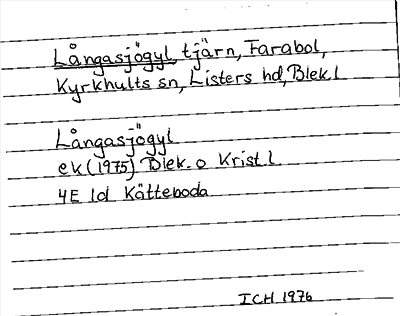 Långasjögyl, tjärn, Farabol,
Kyrkhults sn, Listers hd, Blek.l
Långasjögyl
ek (1975) Blek. o Krist.l.
4E 1d Kätteboda
ICH 1976